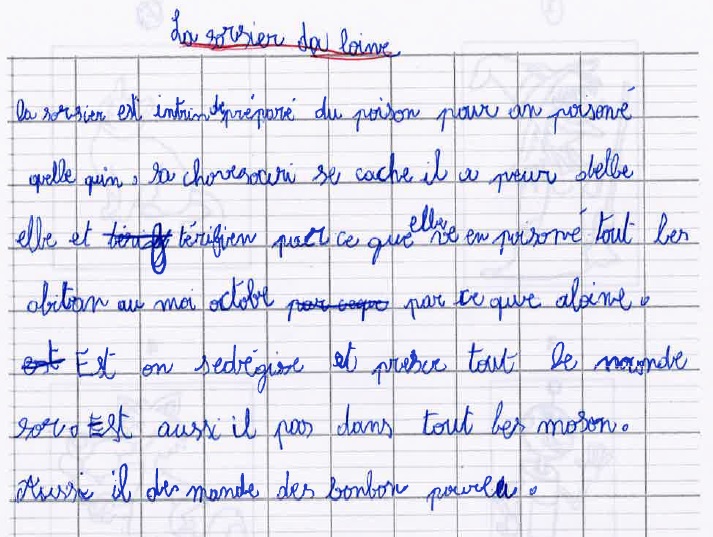 La sorsier da loine
la sorsier est intrindepréparé du poison pour an poisoné
quelle quin, sa chovesouri se cache il a peur delle
elle et térifien parce que elle ve en poisoné tout les
abitan au moi octobe par ceque par ce que aloine.
est Est on sedégise et presce tout le monde
sor. Est aussi il pas dans tout les moson.
Aussi il demande des bonbon pourla.